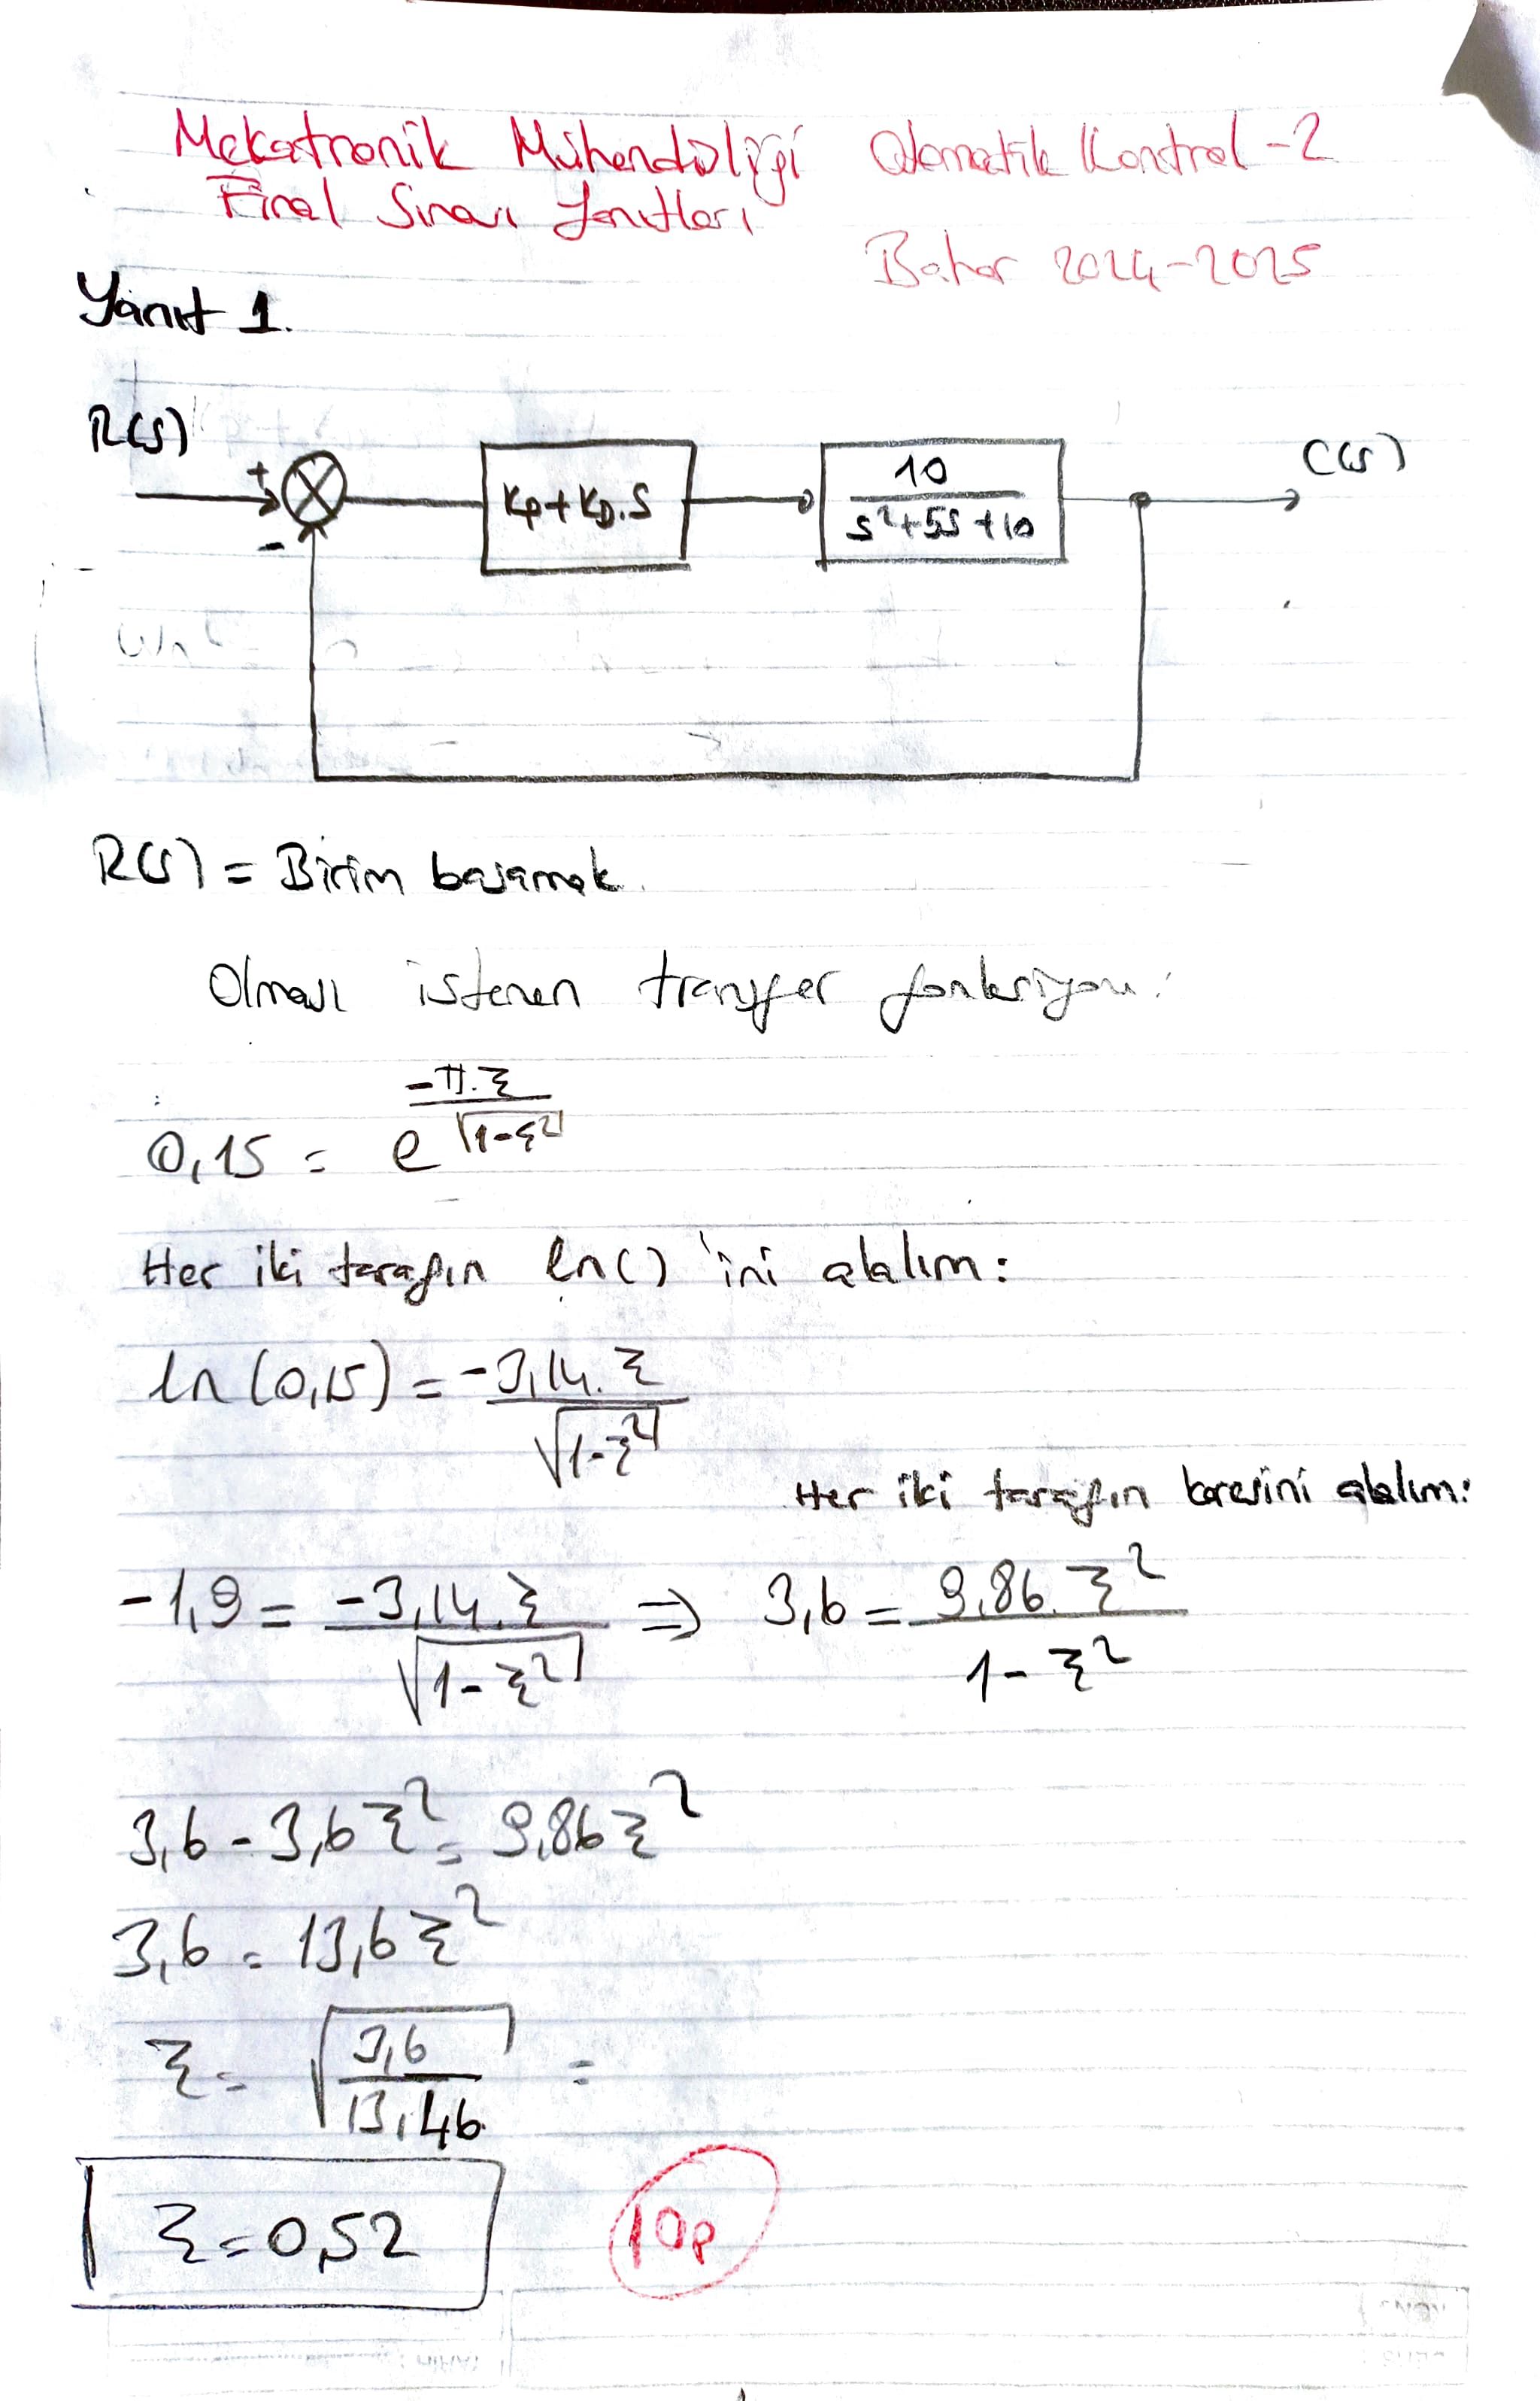 Mekatronik Mühendisliği Otomatik Kontrol-2
Final Sınavı Yanıtları
Bahar 2024-2025
Yanıt 1.
R(s)
+
-
Kp+KD.S
10
s²+5s+10
C(s)
R(s) = Birim basamak.
Olması istenen transfer fonksiyonu:
0,15 = e^(-π.ξ / √(1-ξ²))
Her iki tarafın ln() 'ini alalım:
ln(0,15) = -3,14.ξ / √(1-ξ²)
Her iki tarafın karesini alalım:
-1,9 = -3,14.ξ / √(1-ξ²) ⇒ 3,6 = 9,86.ξ² / 1-ξ²
3,6 - 3,6ξ² = 9,86ξ²
3,6 = 13,6ξ²
ξ = √(3,6 / 13,46) =
ξ = 0,52
10p